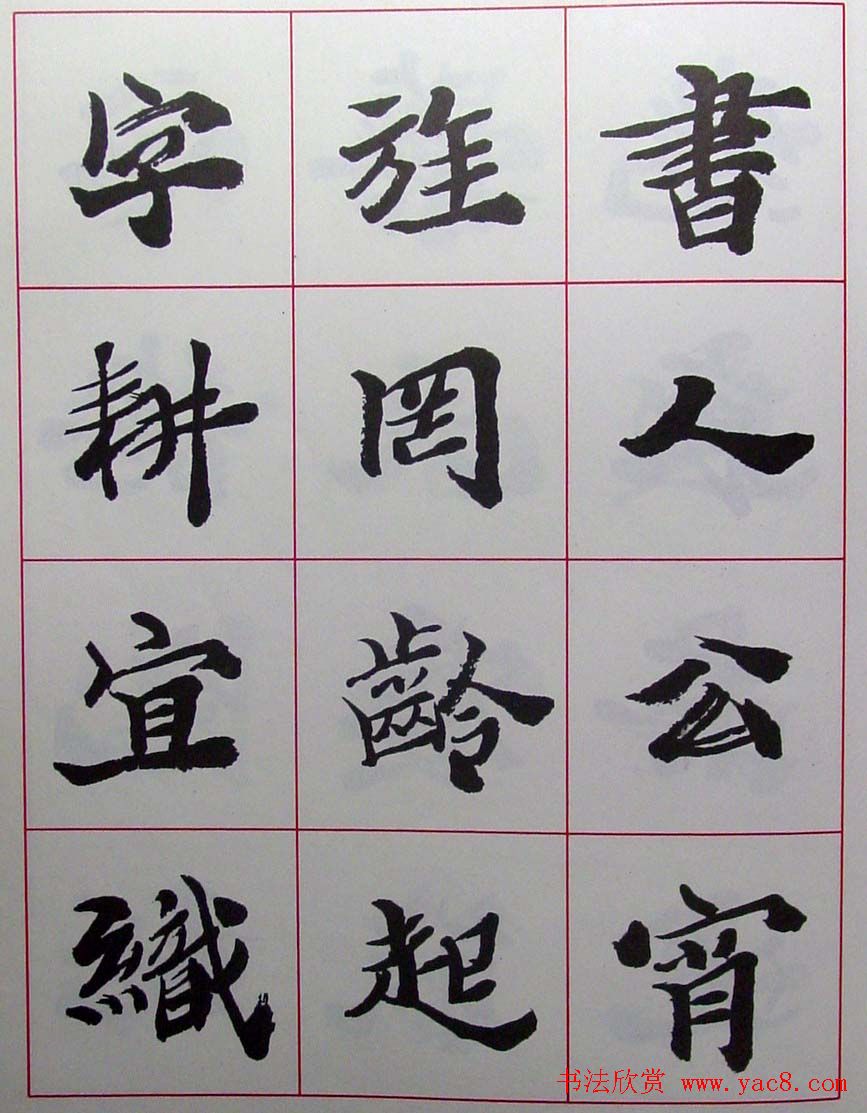 書人公宵
旌罔齡起
字耕宜織
书法欣赏 www.yac8.com